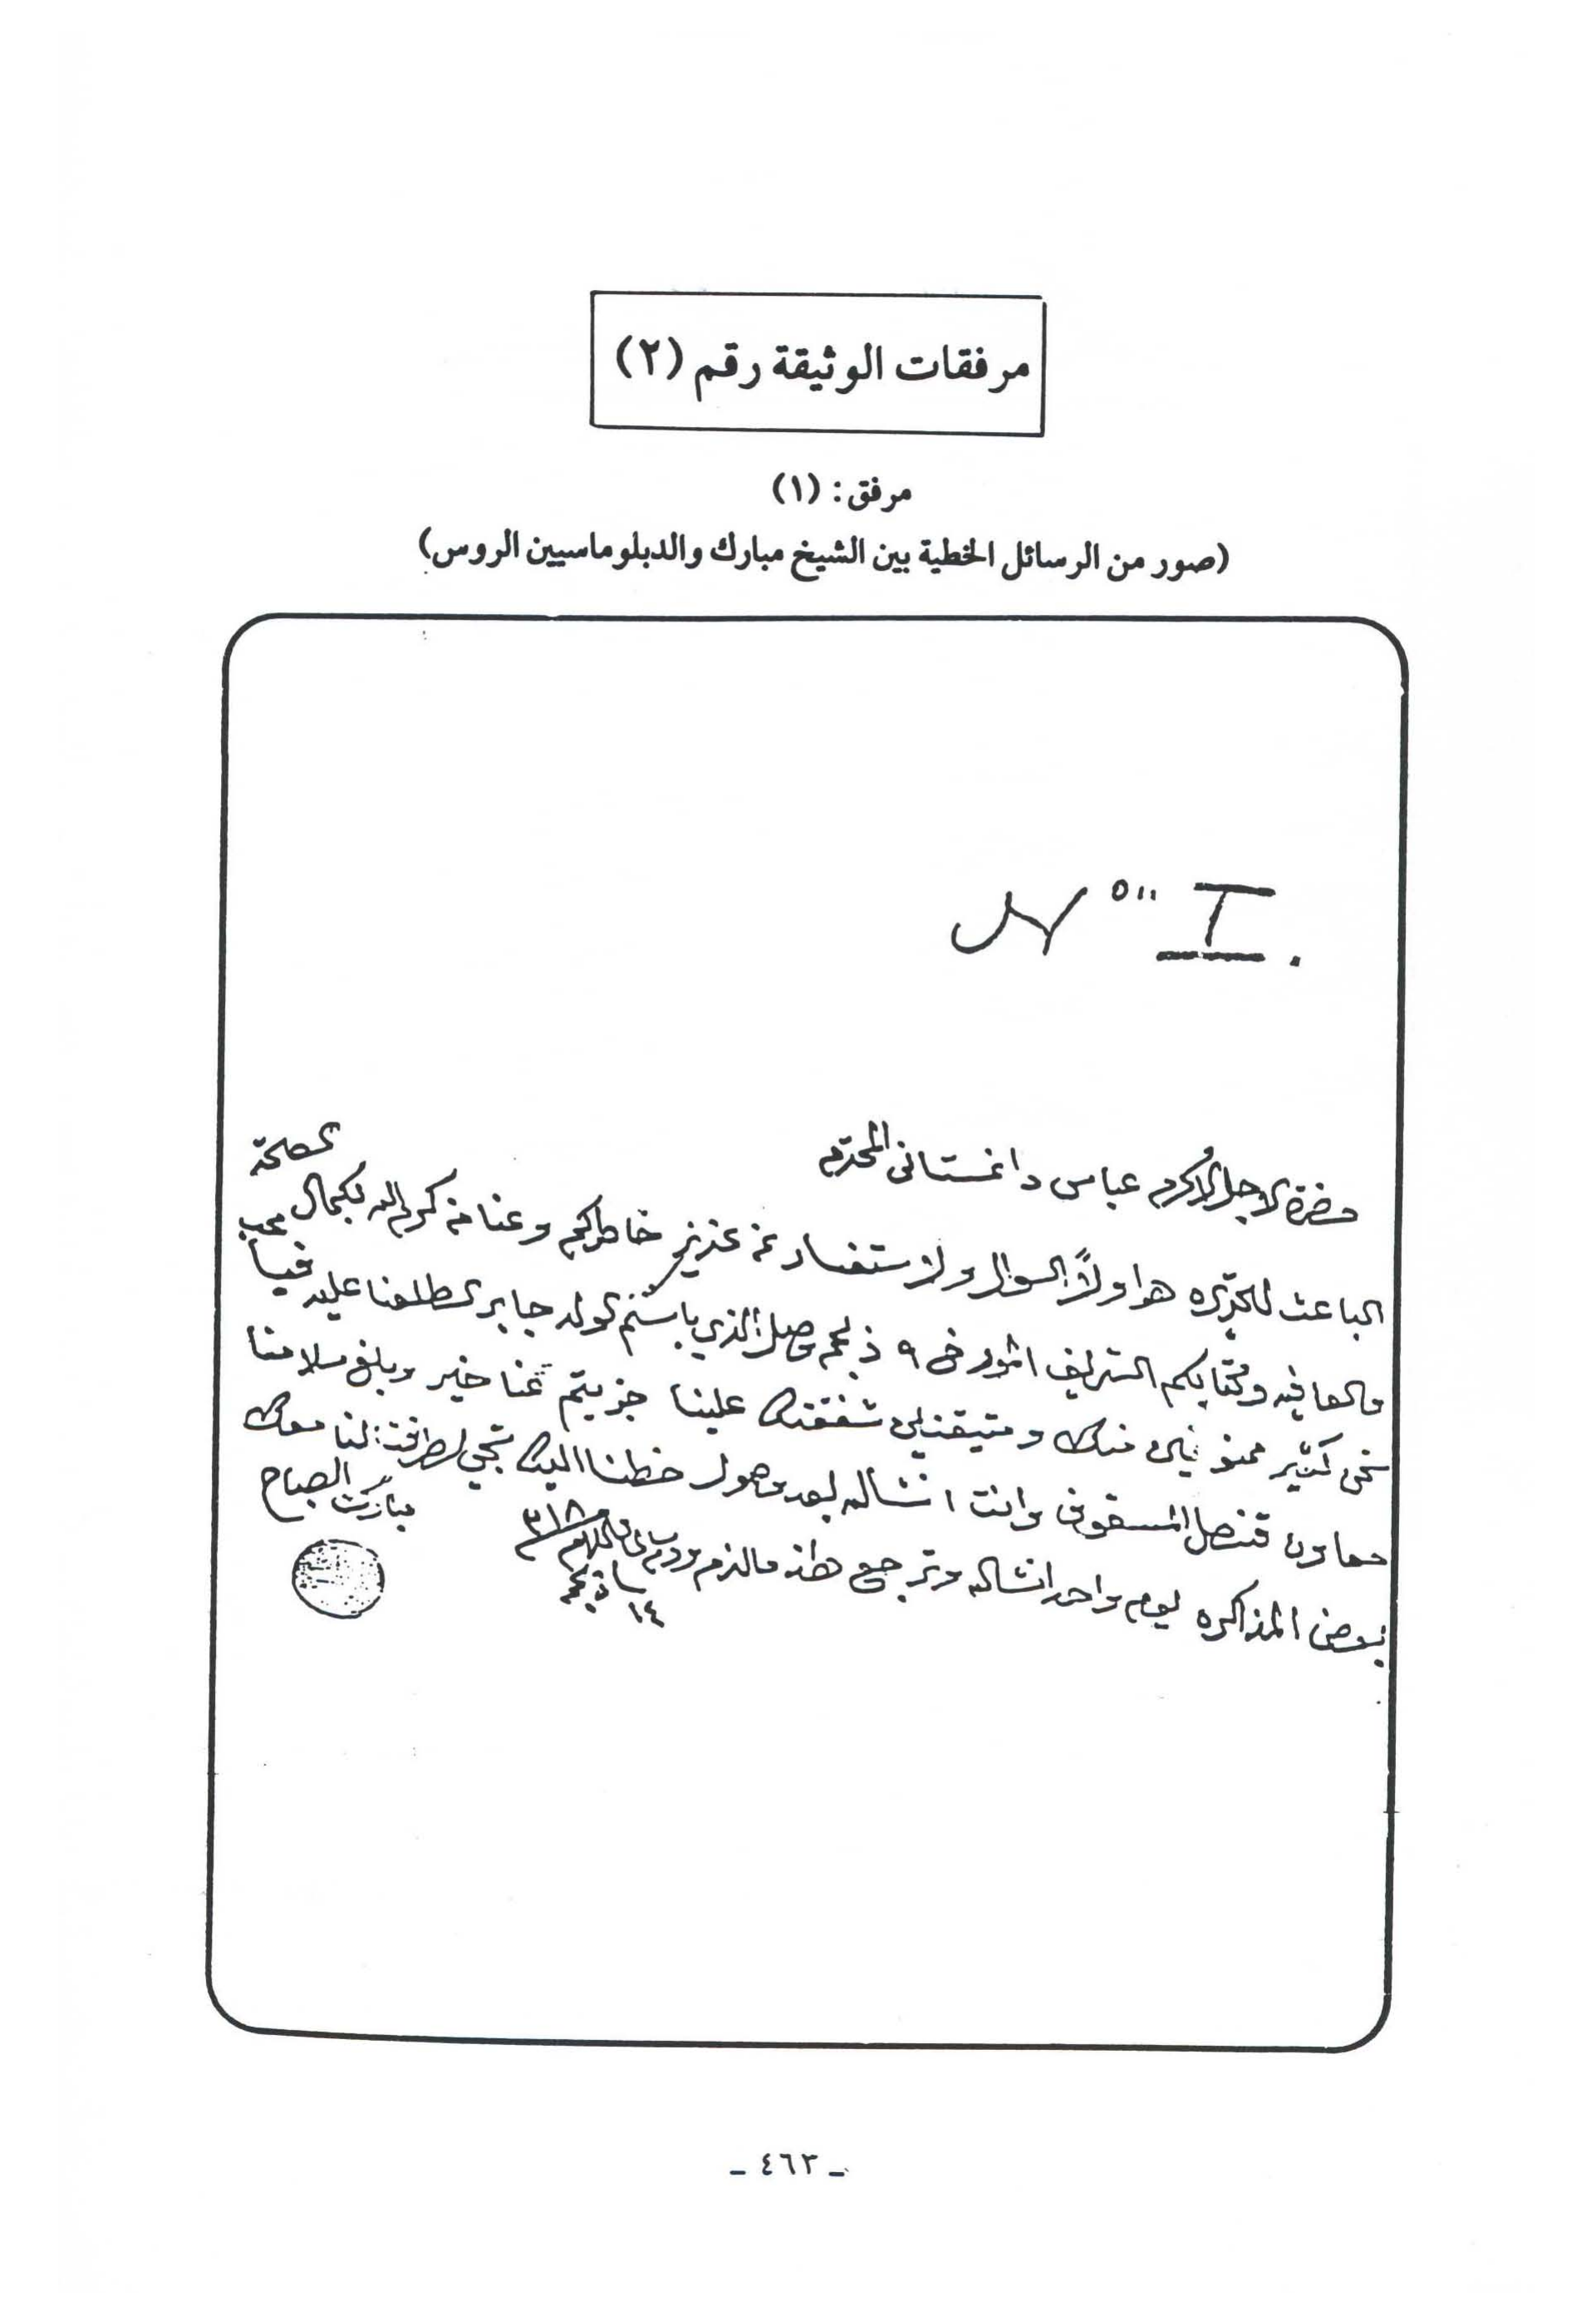 مرفقات الوثيقة رقم (٢)
مرفق: (١)
(صور من الرسائل الخطية بين الشيخ مبارك والدبلوماسيين الروس)
Nº I.
حضرة الاجل الاكرم عباس داغستاني المحترم
الباعث لتحريره هو اولاً السوال والاستفسار عن عزيز خاطركم وعنا من كرم الله بكمال الصحة
والعافيه وكتابكم الشريف في ٩ وصل الذي باسم الولد جابر اطلعنا عليه
نحن كثير ممنونين منك ومتيقنين شفقتك علينا جزيتم عنا خير وبلغ سلامنا
معاون قنصل المسقوف وانت انشالله بعد وصول خطنا اليك تجي لطرفنا لنا معك
بعض المذاكره يوم واحد انشالله وترجع هذا مالزم ودمتم
٣١٨
١٤
مبارك الصباح
ـ ٤٦٣ ـ